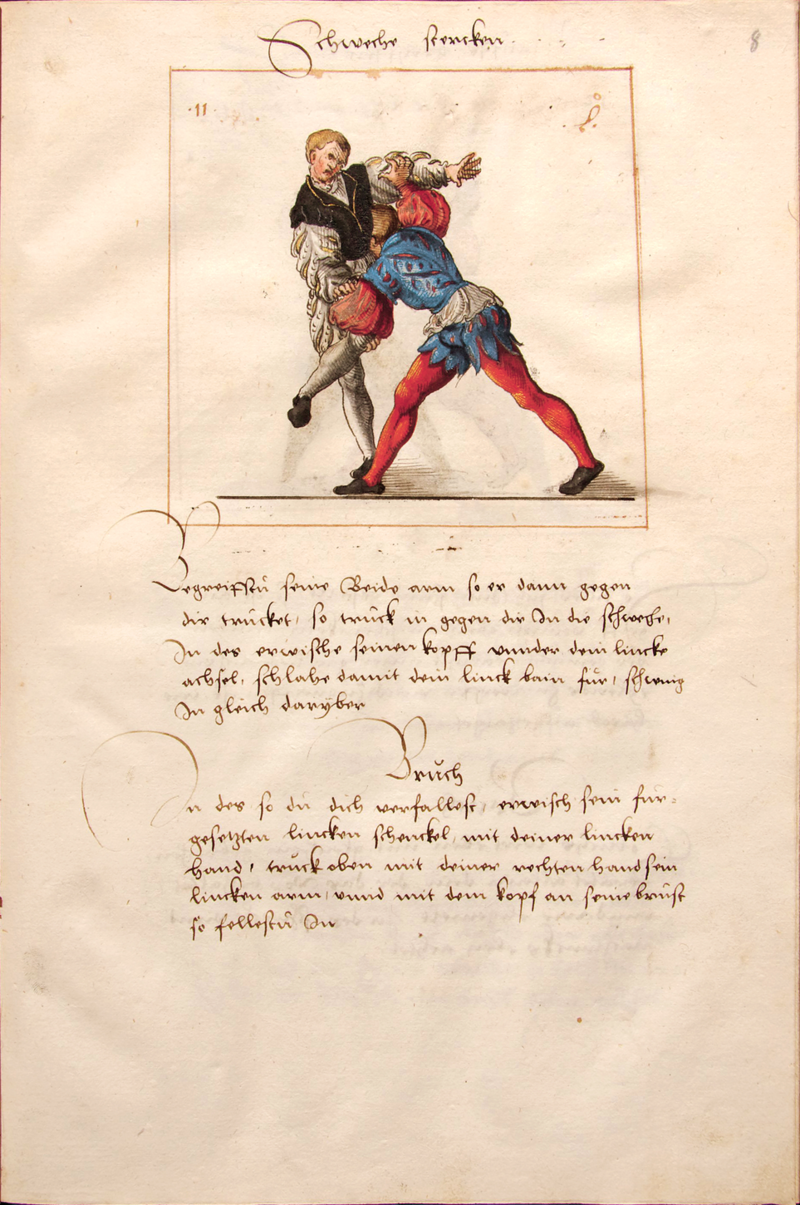 Schweche stercken
8
·11·
Begreiffstu seine Beide arm so er dann gegen
dir trucket, so truck in gegen dir In die schweche,
In des erwische seinen kopff vnnder dein lincke
achsel, schlahe damit dein linck bain fur, schwing
In gleich daryber
Bruch
In des so du dich verfallest, erwisch sein fur-
gesetzten lincken schenckel, mit deiner lincken
hand, truck oben mit deiner rechten hand sein
lincken arm, vnnd mit dem kopf an seine brust
so fellestu In